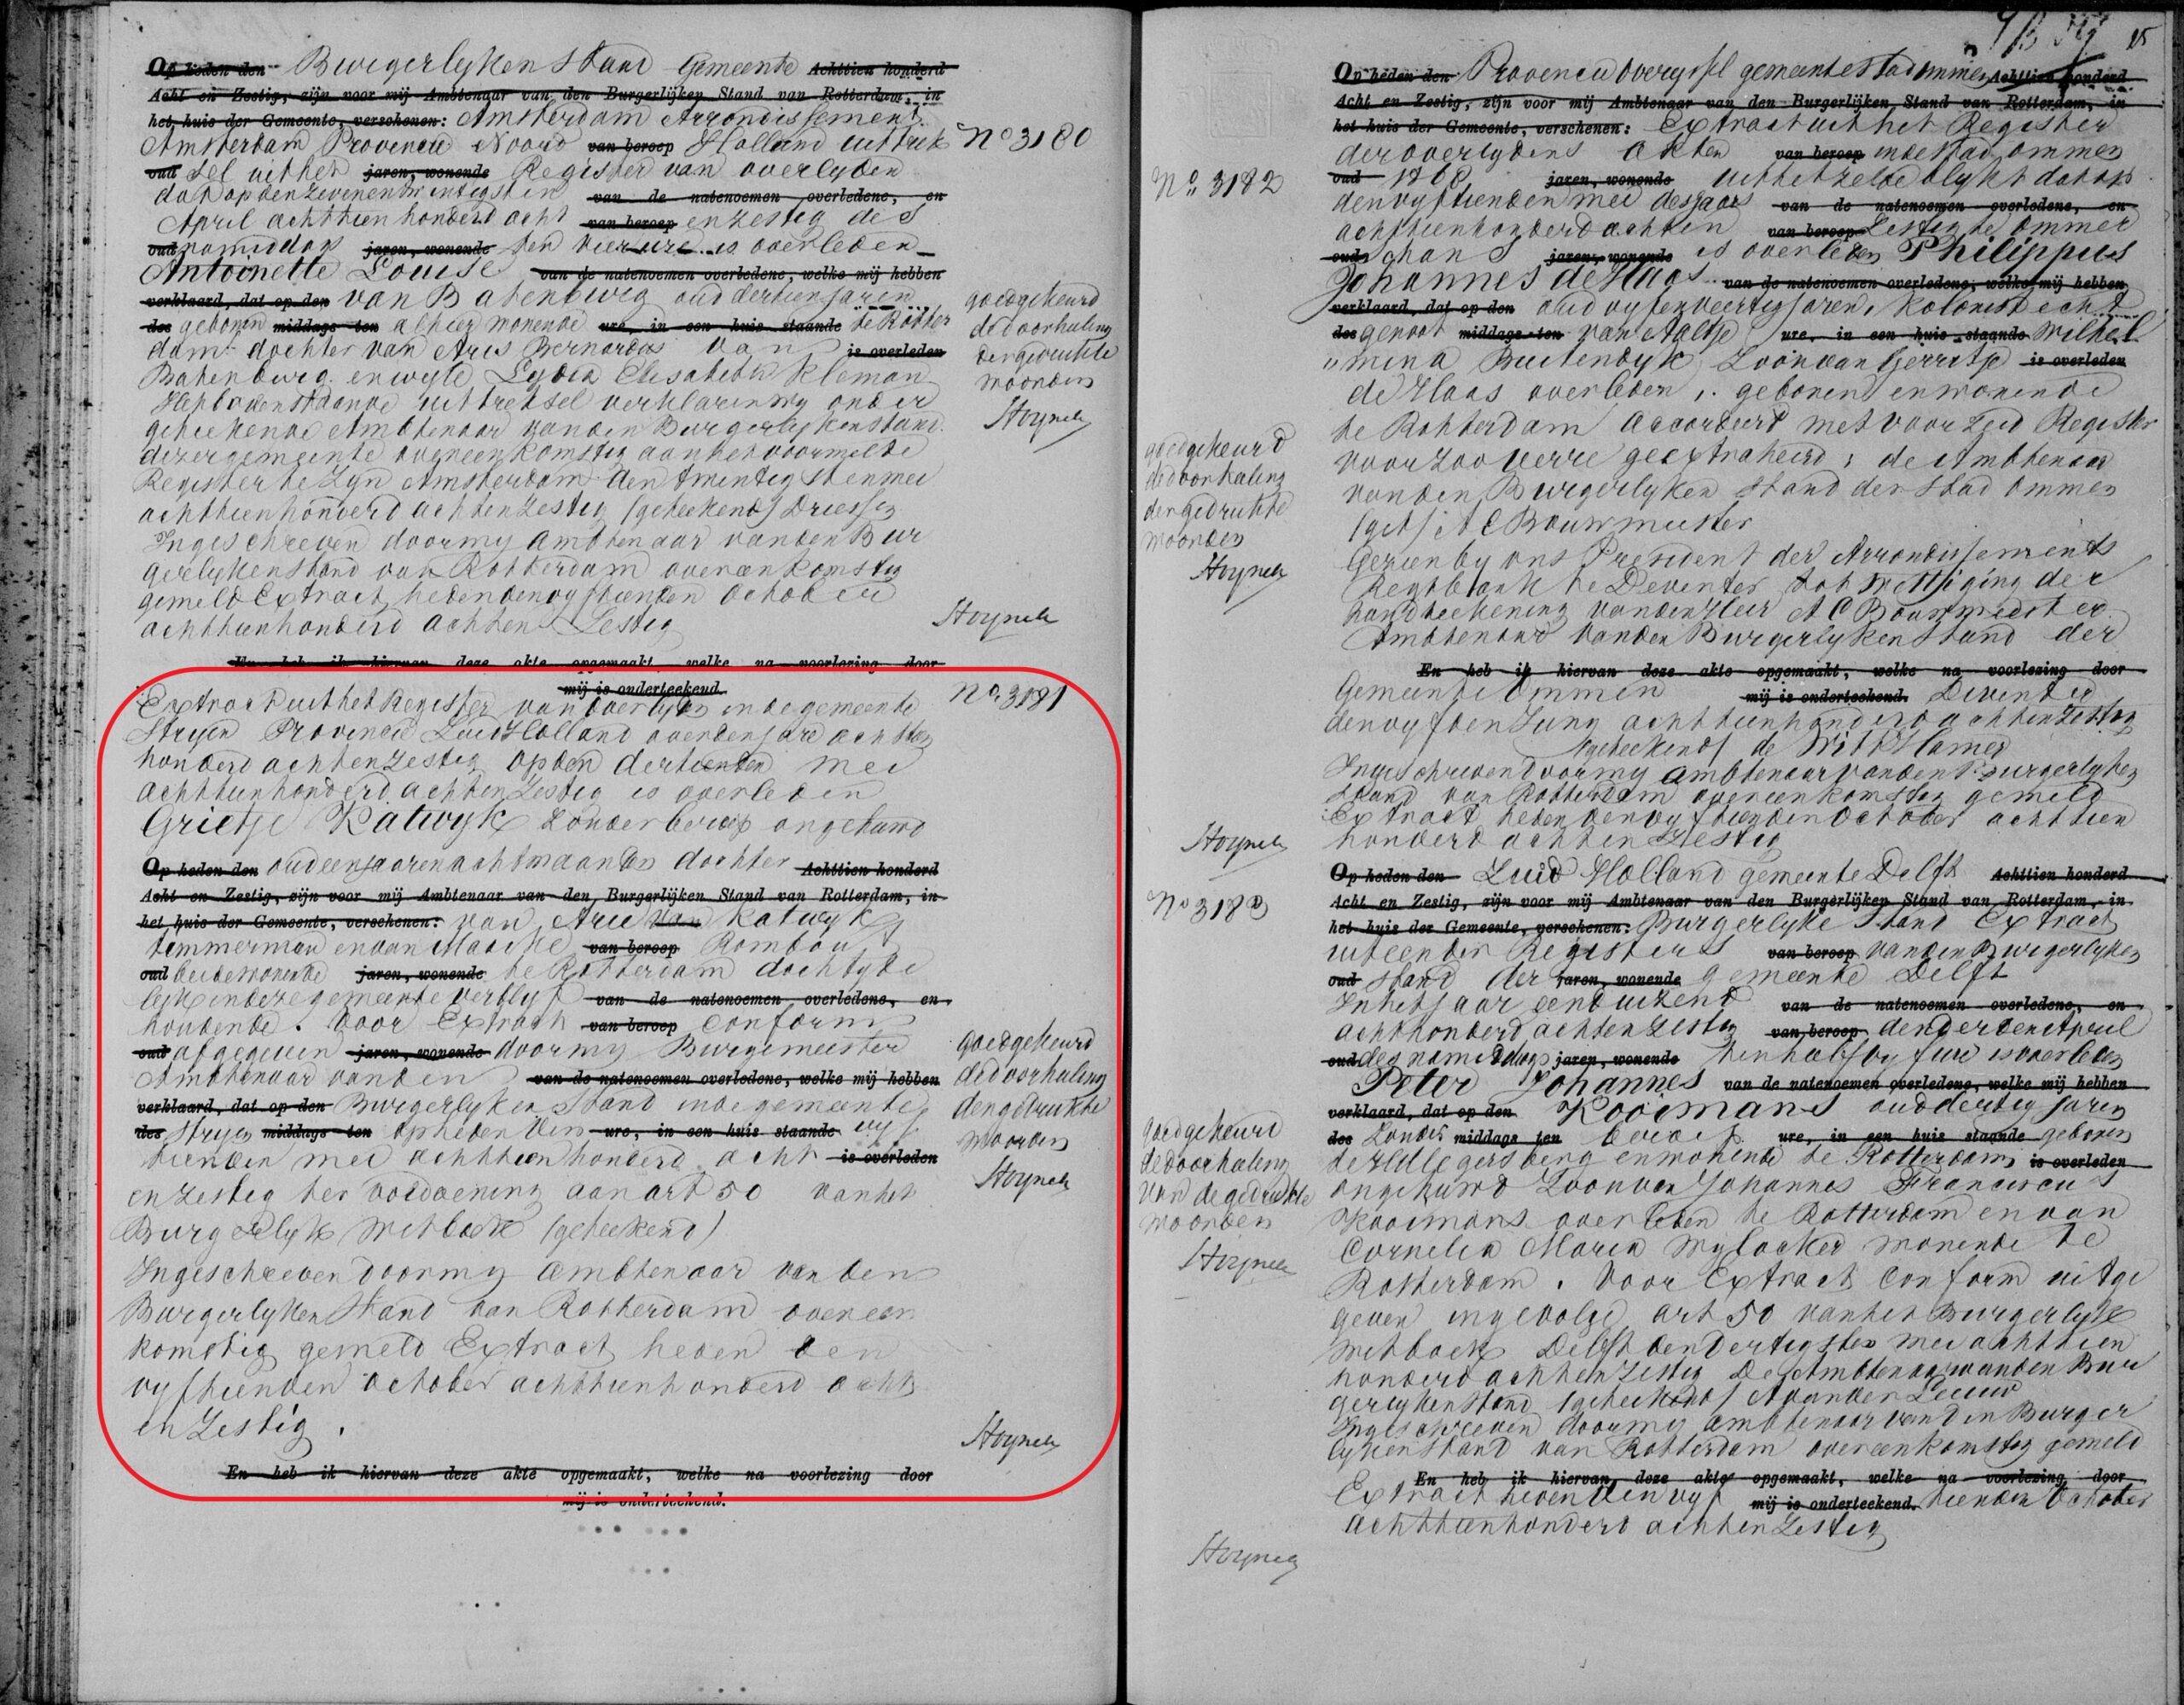 Op heden den Burgerlyken Stand Gemeente Achttien honderd
Acht en Zestig, zijn voor mij Ambtenaar van den Burgerlijken Stand van Rotterdam, in
het huis der Gemeente, verschenen: Amsterdam Arrondissement
Amsterdam Provincie Noord van beroep Holland uittrek
oud sel uit het jaren, wonende Register van overlyden
dat op den zevenentwintigsten van de natenoemen overledene, en
April achttien honderd acht van beroep en zestig des
oud namiddags jaren, wonende ten vier ure is overleden
Antoinette Louise van de natenoemen overledene, welke mij hebben
verklaard, dat op den van Batenburg oud dertien jaren
des geboren middags ten alhier wonende ure, in een huis staande te Rotter
dam dochter van Aris Bernardus van is overleden
Batenburg en wyle Lydia Elisabeth Kleman
Hetbovenstaande uittreksel verklaren wy onder
geteekende Ambtenaar van den Burgerlyken Stand
dezer gemeente overeenkomstig aan het voormelde
Register te zyn Amsterdam den twintigsten mei
achttienhonderd achtenzestig (geteekend) Driessen
Ingeschreven door my ambtenaar van den Bur
gerlyken Stand van Rotterdam overeenkomstig
gemeld Extract heden den vyftienden October
achttienhonderd achten Zestig
En heb ik hiervan deze akte opgemaakt, welke na voorlezing door
mij is onderteekend.
No 3180
goedgekeurd
de doorhaling
der gedrukte
woorden
Hoynck
Hoynck
No 3181
Extract uit het Register van overlyden in de gemeente
Stryen Provincie Zuid Holland over den jare achttien
honderd achtenzestig op den dertienden mei
achttienhonderd achten Zestig is overleden
Grietje Katwyk zonder beroep ongehuwd
Op heden den oud een jaaren acht maanden dochter Achttien honderd
Acht en Zestig, zijn voor mij Ambtenaar van den Burgerlijken Stand van Rotterdam, in
het huis der Gemeente, verschenen: van Arie van Katwyk
timmerman en van Maaike van beroep Rombout
oud beide wonende jaren, wonende te Rotterdam doch tyde
lyk in deze gemeente verblyf van de natenoemen overledene, en
houdende. Voor Extract van beroep conform
oud afgegeven jaren, wonende door my Burgemeester
Ambtenaar van den van de natenoemen overledene, welke mij hebben
verklaard, dat op den Burgerlyken Stand in de gemeente
des Stryen middags ten op heden den ure, in een huis staande vyf
tienden mei achttienhonderd acht is overleden
en zestig ter voldoening aan art 50 van het
Burgerlyk Wetboek (geteekend)
Ingeschreven door my ambtenaar van den
Burgerlyken Stand van Rotterdam overeen
komstig gemeld Extract heden den
vyftienden october achttienhonderd acht
en Zestig.
En heb ik hiervan deze akte opgemaakt, welke na voorlezing door
mij is onderteekend.
goedgekeurd
de doorhaling
der gedrukte
woorden
Hoynck
Hoynck
25
Op heden den Provincie Overyssel gemeente Stad Ommen Achttien honderd
Acht en Zestig, zijn voor mij Ambtenaar van den Burgerlijken Stand van Rotterdam, in
het huis der Gemeente, verschenen: Extract uit het Register
der overlydens akten van beroep in de Stad Ommen
oud 1868 jaren, wonende uit hetzelve blykt dat op
den vyftienden mei des jaars van de natenoemen overledene, en
achttienhonderd achten van beroep Zestig te Ommer
oud schans jaren, wonende is overleden Philippus
Johannes de Haas van de natenoemen overledene, welke mij hebben
verklaard, dat op den oud vyfenveertig jaren, kolonist echt
des genoot middags ten van Aaltje ure, in een huis staande Wilhel
mina Buitendyk, Zoon van Gerritje is overleden
de Haas overleden, geboren en wonende
te Rotterdam Accordeert met voorzeid Register
voor zoo verre geextraheerd; de Ambtenaar
van den Burgerlyken Stand der Stad Ommen
(get) A C Bouwmeester
Gezien by ons President der Arrondissements
Regtbank te Deventer tot wettiging der
handteekening van den Heer A C Bouwmeester
Ambtenaar van den Burgerlyken Stand der
En heb ik hiervan deze akte opgemaakt, welke na voorlezing door
Gemeente Ommen mij is onderteekend. Deventer
den vyfden Juny achttienhonderd achtenzestig
(geteekend) de Witt Hamer
Ingeschreven door my ambtenaar van den Burgerlyken
Stand van Rotterdam overeenkomstig gemeld
Extract heden den vyftienden October achttien
honderd achten Zestig
No 3182
goedgekeurd
de doorhaling
der gedrukte
woorden
Hoynck
Hoynck
No 3183
Op heden den Zuid Holland gemeente Delft Achttien honderd
Acht en Zestig, zijn voor mij Ambtenaar van den Burgerlijken Stand van Rotterdam, in
het huis der Gemeente, verschenen: Burgerlyke Stand Extract
uit een der Registers van beroep van den Burgerlyken
oud Stand der jaren, wonende gemeente Delft
In het jaar eenduizend van de natenoemen overledene, en
achthonderd achtenzestig van beroep den derden April
oud des namiddags jaren, wonende ten half vyf ure is overleden
Peter Johannes van de natenoemen overledene, welke mij hebben
verklaard, dat op den Kooimans oud dertig jaren
des Zonder middags ten beroep ure, in een huis staande geboren
te Hillegersberg en wonende te Rotterdam is overleden
ongehuwd Zoon van Johannes Franciscus
Kooimans overleden te Rotterdam en van
Cornelia Maria Mylacker wonende te
Rotterdam. Voor Extract Conform uitge
geven ingevolge art 50 van het Burgerlyk
Wetboek Delft den dertigsten mei achttien
honderd achten Zestig De Ambtenaar van den Bur
gerlyken Stand (geteekend) A van der Leeuw
Ingeschreven door my ambtenaar van den Burger
lyken Stand van Rotterdam overeenkomstig gemeld
En heb ik hiervan deze akte opgemaakt, welke na voorlezing door
Extract heden den vyf mij is onderteekend. tienden October
achttienhonderd achtenzestig
goedgekeurd
de doorhaling
van de gedrukte
woorden
Hoynck
Hoynck